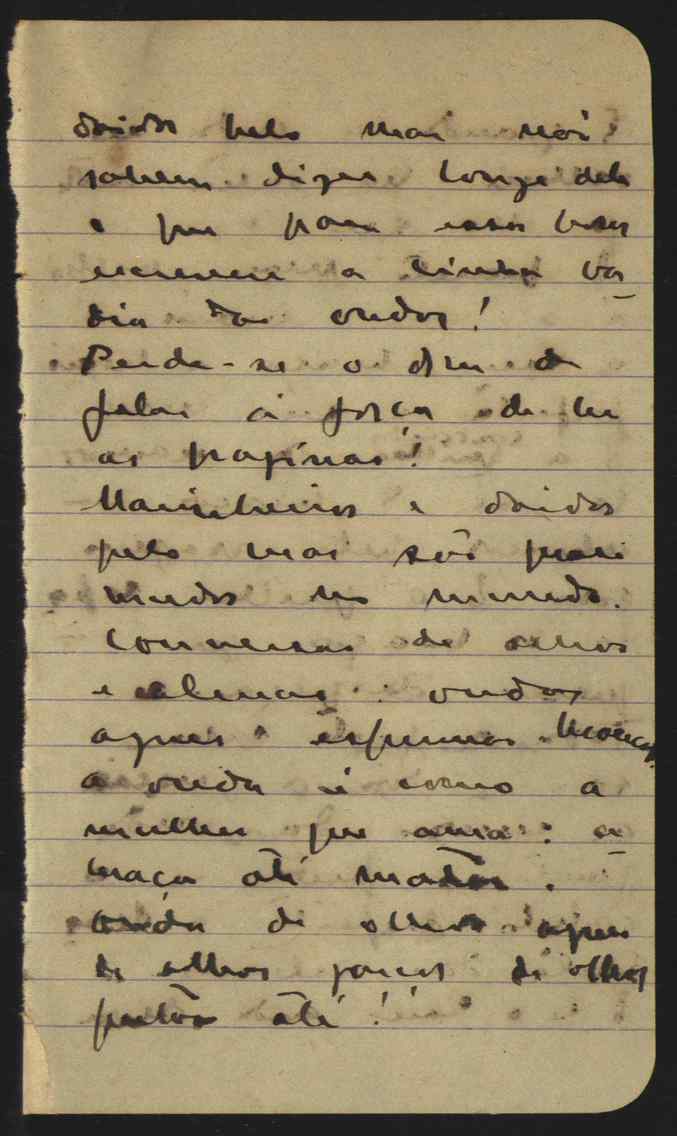 doidos pelo mar não
sabem dizer longe dele
e que para essas
escrevem a linha
dia das ondas!
Perde-se o dom de
falar á força de ler
as paginas!
Marinheiros e doidos
pelo mar são quasi
mudos no mundo.
Conversas de olhos
e almas: ondas
agues espumas
a onda é como a
mulher que ama: a
braça até matar.
onda de olhos agues
de olhos de olhos
até!!